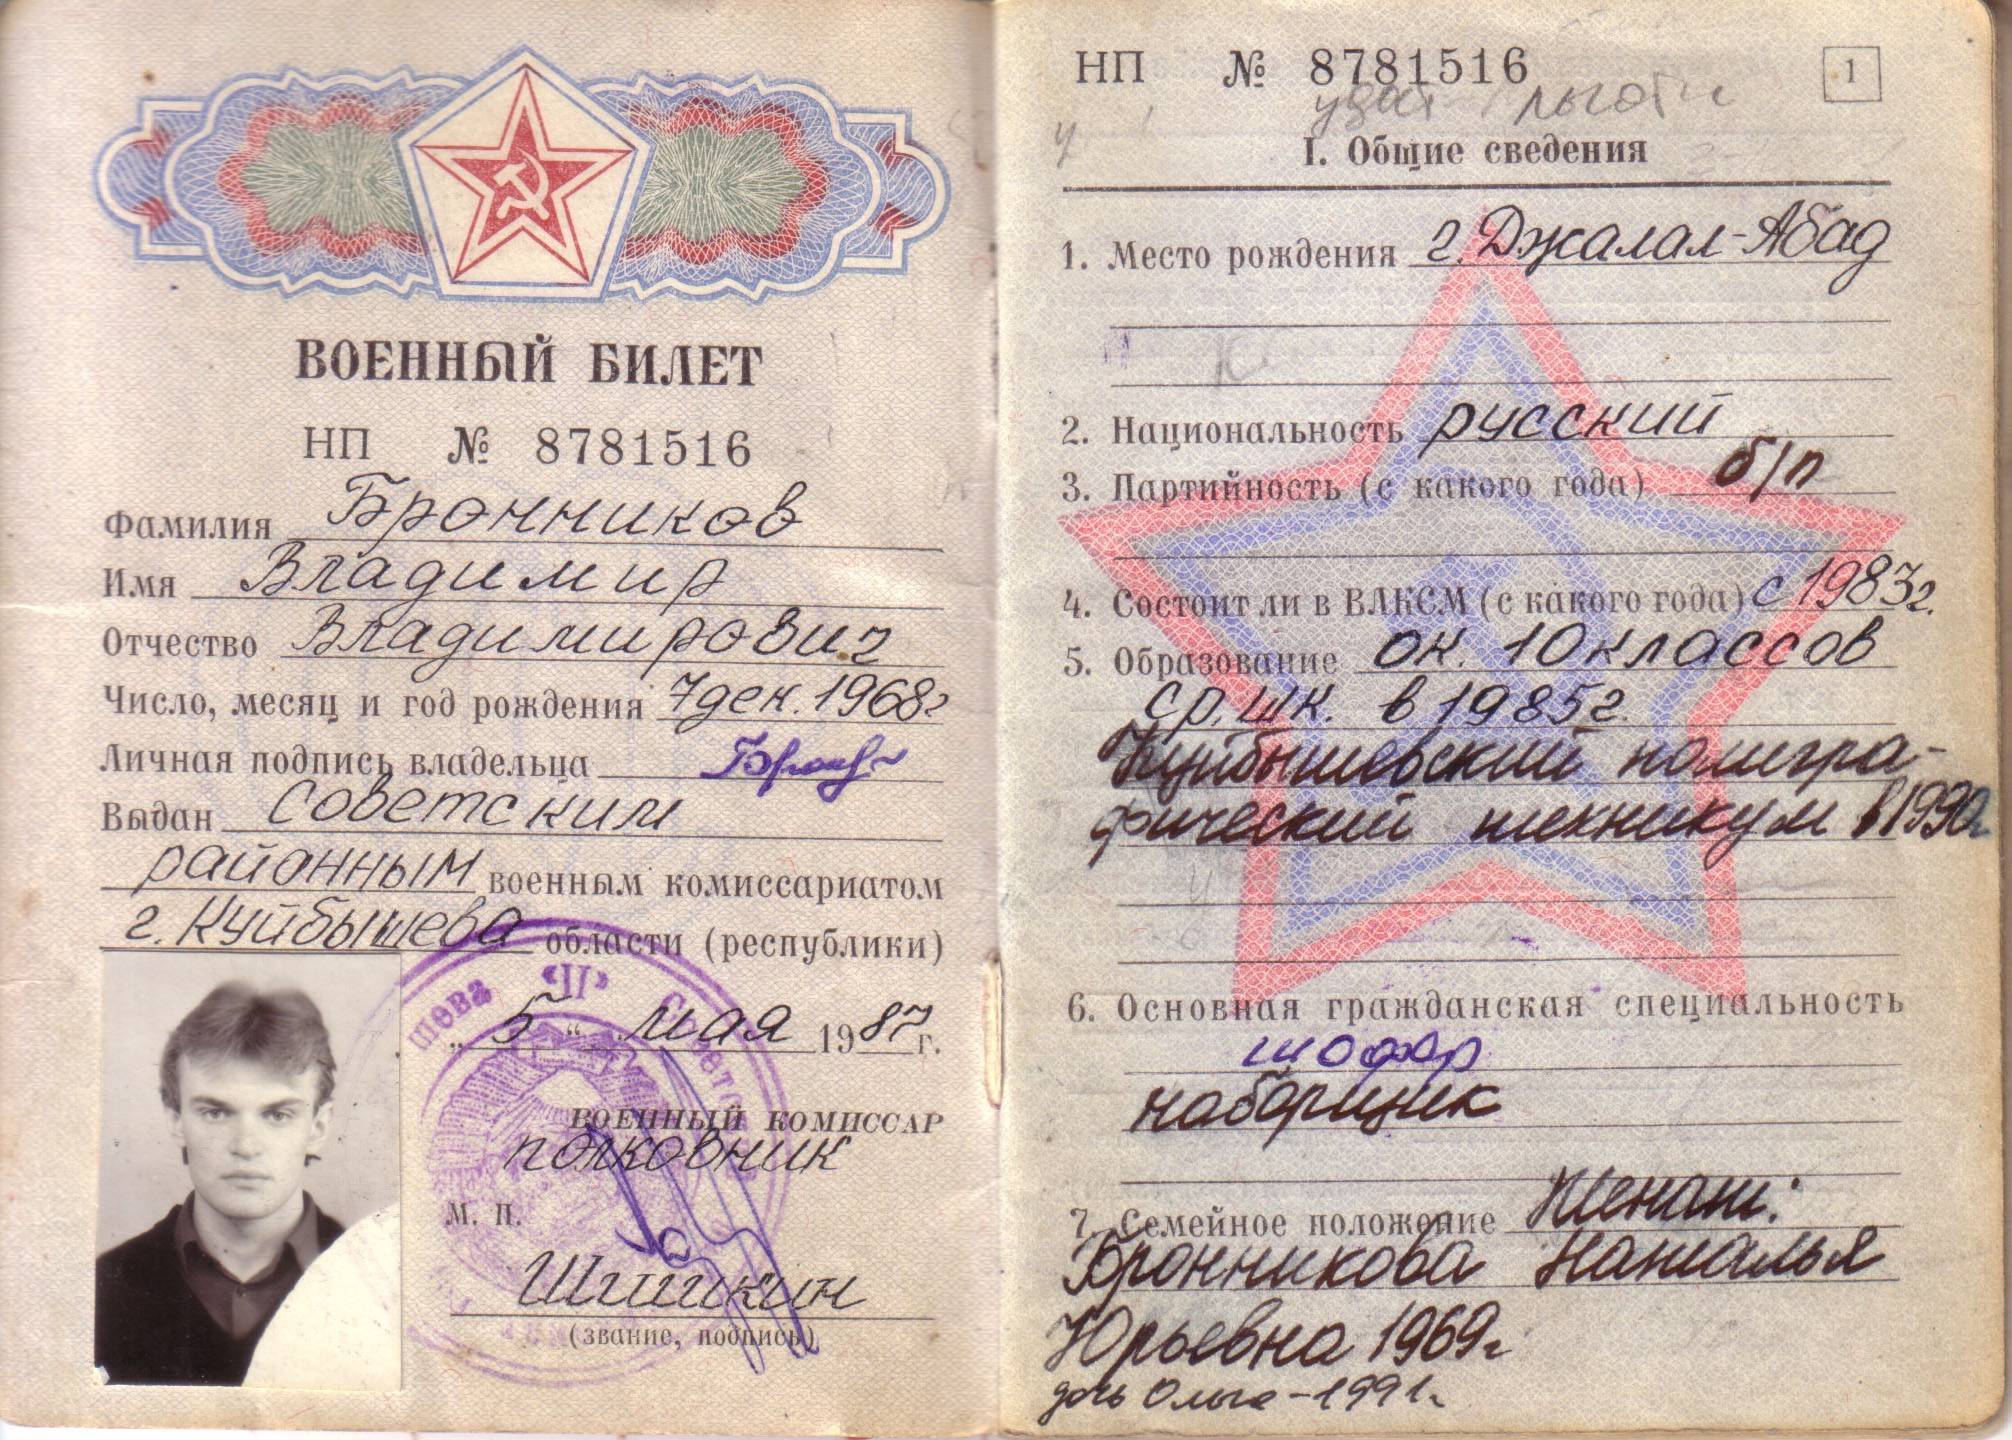 ВОЕННЫЙ БИЛЕТ
НП № 8781516
Фамилия Бронников
Имя Владимир
Отчество Владимирович
Число, месяц и год рождения 7 дек. 1968г
Личная подпись владельца
Выдан Советским
районным военным комиссариатом
г. Куйбышева области (республики)
„ 5 “ мая 1987 г.
ВОЕННЫЙ КОМИССАР
полковник
М. П.
Шишкин
(звание, подпись)
НП № 8781516
1
льготы
I. Общие сведения
1. Место рождения г. Джалал-Абад
2. Национальность русский
3. Партийность (с какого года) б/п
4. Состоит ли в ВЛКСМ (с какого года) с 1983г.
5. Образование ок. 10 классов
ср. шк. в 1985г.
Куйбышевский полигра-
фический техникум в 1990г
6. Основная гражданская специальность
шофер
наборщик
7. Семейное положение Женат:
Бронникова Наталья
Юрьевна 1969г
дочь Ольга - 1991г